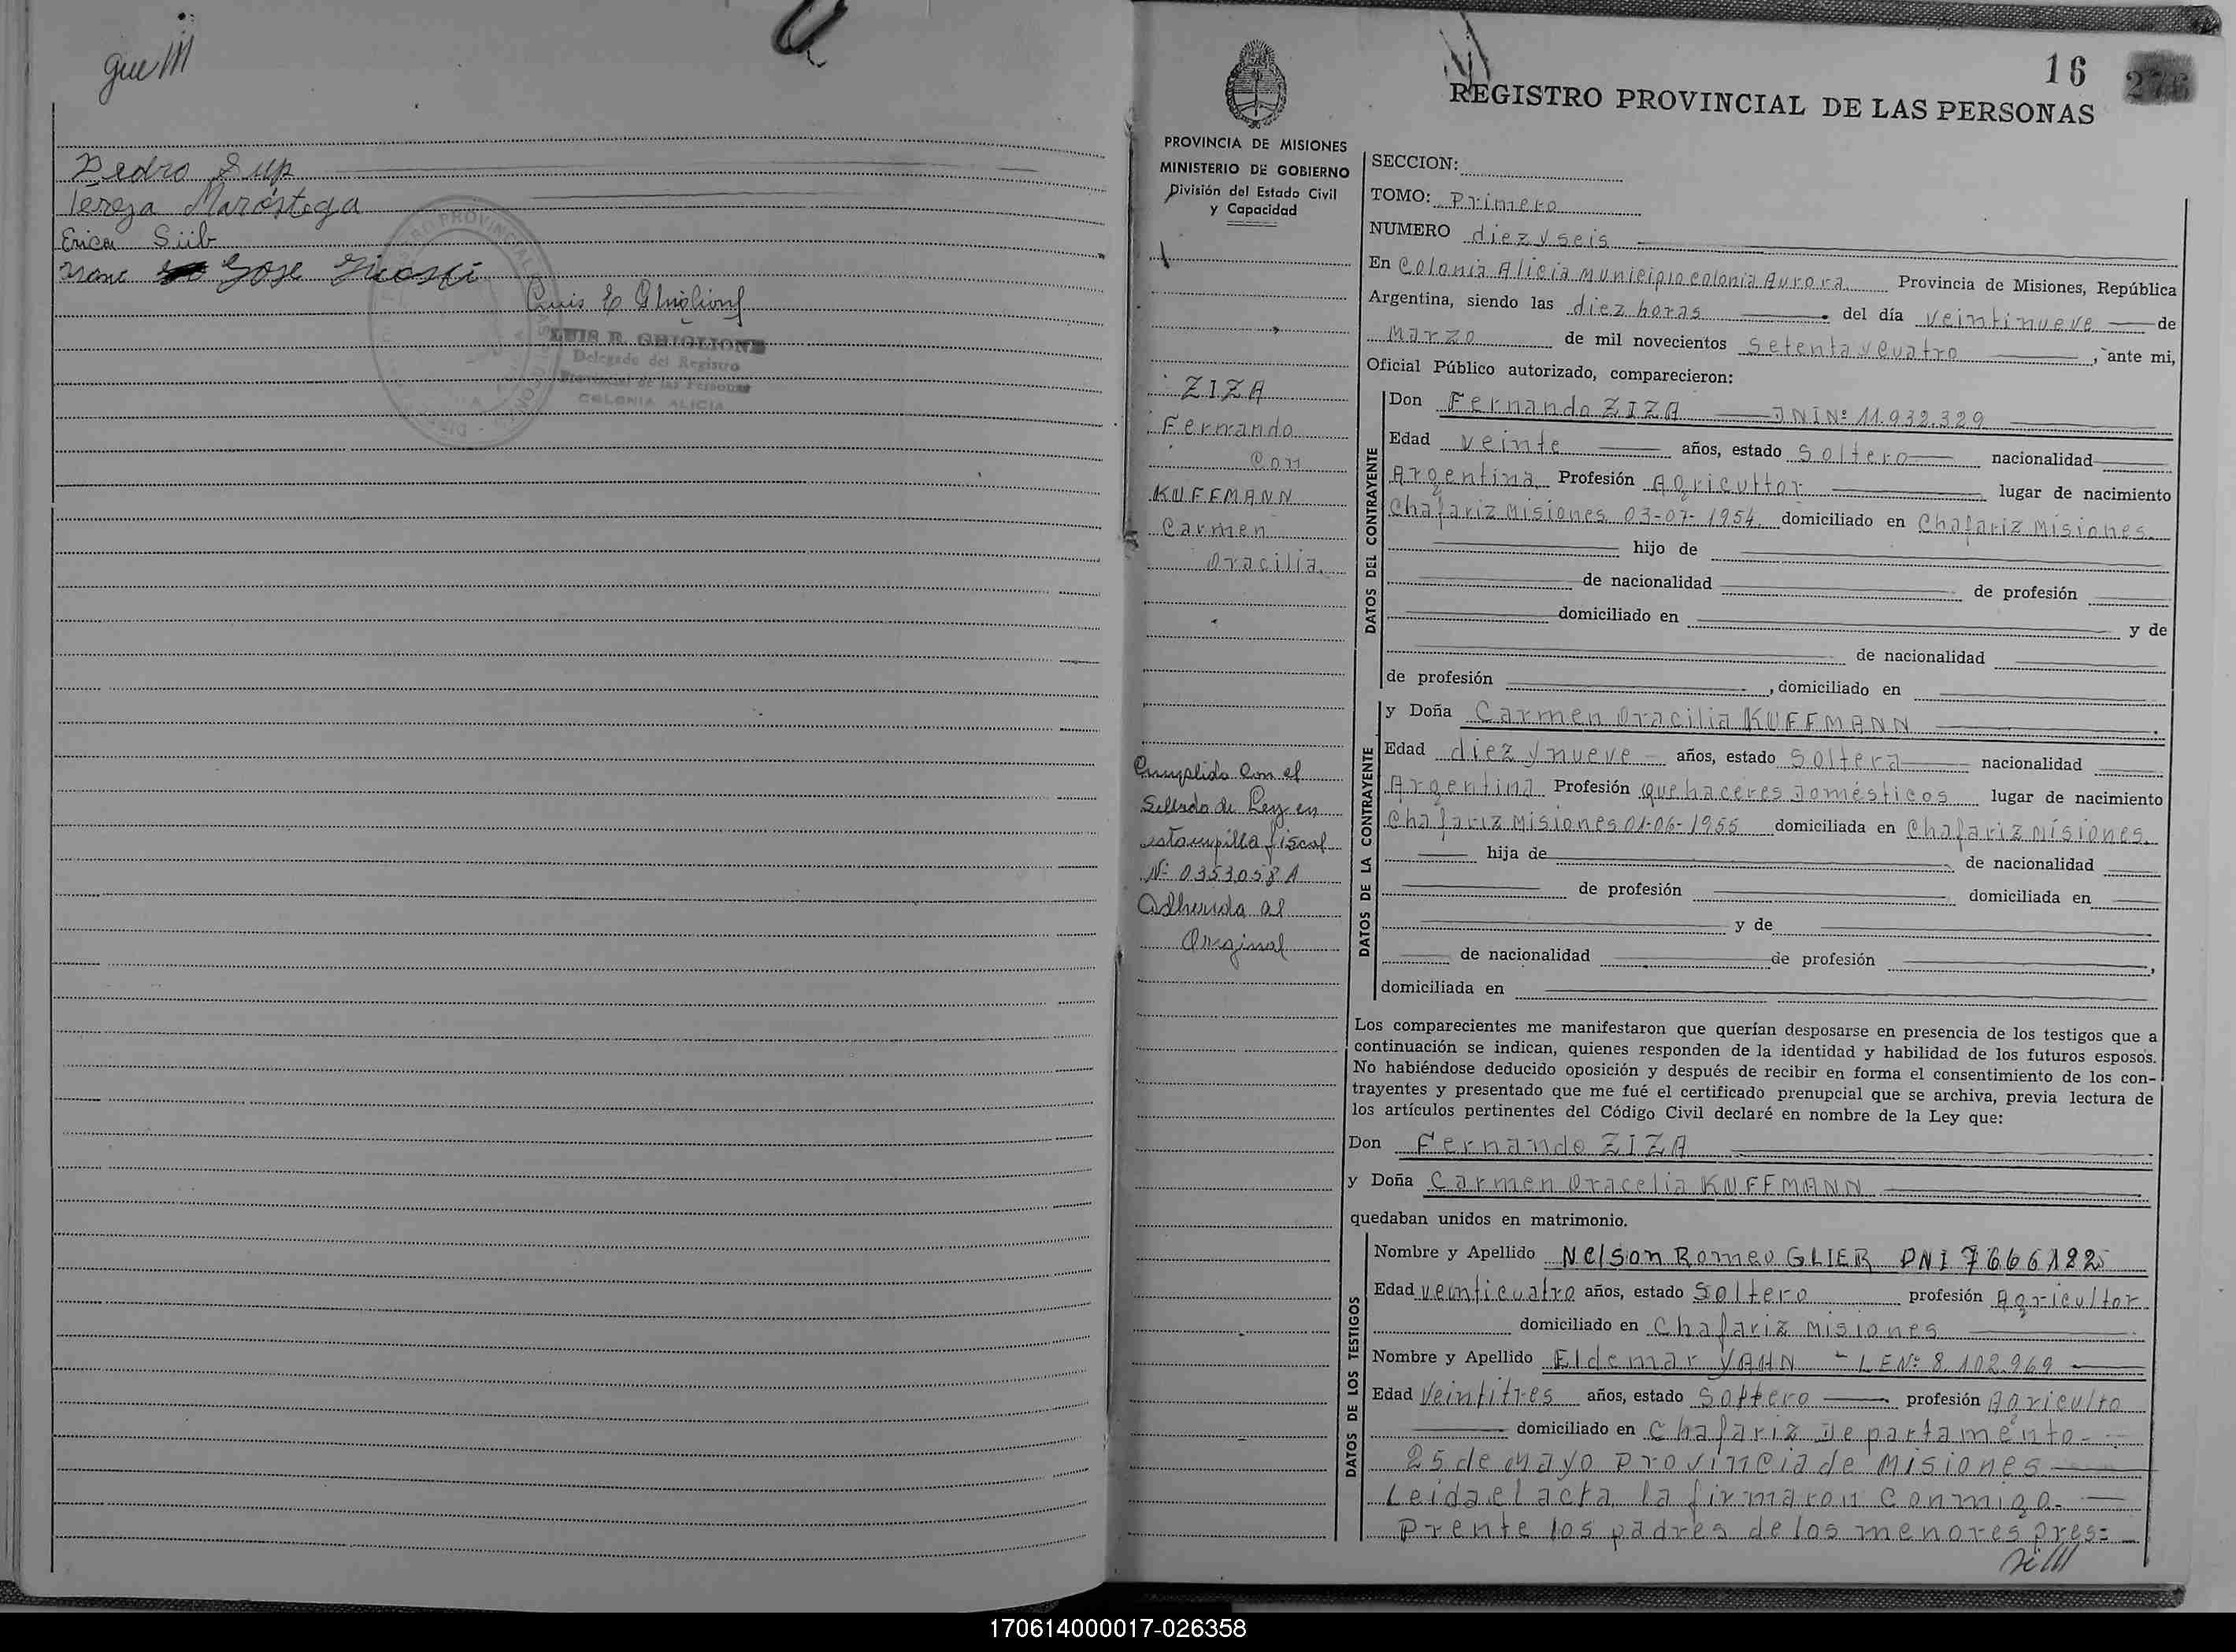 gue///
Pedro Sup
Tereza Maróstega
Erica Süb
Jose
Luis E Ghiglione
LUIS E. GHIGLIONE
Delegado del Registro
Provincial de las Personas
COLONIA ALICIA
16
276
REGISTRO PROVINCIAL DE LAS PERSONAS
PROVINCIA DE MISIONES
MINISTERIO DE GOBIERNO
División del Estado Civil
y Capacidad
ZIZA
Fernando
Con
KUFFMANN
Carmen
Oracilia
Cumplido con el
Sellado de Ley en
estampilla fiscal
Nº 0353058 A
Adherida al
Original
SECCION:
TOMO: Primero
NUMERO diez y seis
En Colonia Alicia Municipio colonia Aurora Provincia de Misiones, República
Argentina, siendo las diez horas del día veintinueve de
Marzo de mil novecientos setenta y cuatro, ante mi,
Oficial Público autorizado, comparecieron:
DATOS DEL CONTRAYENTE
Don Fernando ZIZA DNI Nº 11.932.329
Edad veinte años, estado soltero nacionalidad
Argentina Profesión Agricultor lugar de nacimiento
Chafariz Misiones 03-07-1954 domiciliado en Chafariz Misiones.
hijo de
de nacionalidad de profesión
domiciliado en y de
de nacionalidad
de profesión , domiciliado en
DATOS DE LA CONTRAYENTE
y Doña Carmen Oracilia KUFFMANN
Edad diez y nueve años, estado soltera nacionalidad
Argentina Profesión que haceres domésticos lugar de nacimiento
Chafariz Misiones 01-06-1955 domiciliada en Chafariz Misiones.
hija de de nacionalidad
de profesión domiciliada en
y de
de nacionalidad de profesión ,
domiciliada en
Los comparecientes me manifestaron que querían desposarse en presencia de los testigos que a
continuación se indican, quienes responden de la identidad y habilidad de los futuros esposos.
No habiéndose deducido oposición y después de recibir en forma el consentimiento de los con-
trayentes y presentado que me fué el certificado prenupcial que se archiva, previa lectura de
los artículos pertinentes del Código Civil declaré en nombre de la Ley que:
Don Fernando ZIZA
y Doña Carmen Oracelia KUFFMANN
quedaban unidos en matrimonio.
DATOS DE LOS TESTIGOS
Nombre y Apellido Nelson Romeo GLIER DNI 7666182
Edad veinticuatro años, estado Soltero profesión Agricultor
domiciliado en Chafariz Misiones
Nombre y Apellido Eldemar YAHN - LE Nº 8.102.969
Edad Veintitres años, estado soltero profesión Agriculto
domiciliado en Chafariz Departamento-
25 de Mayo Provincia de Misiones
Leida el acta la firmaron conmigo.
Prente los padres de los menores pres=
170614000017-026358